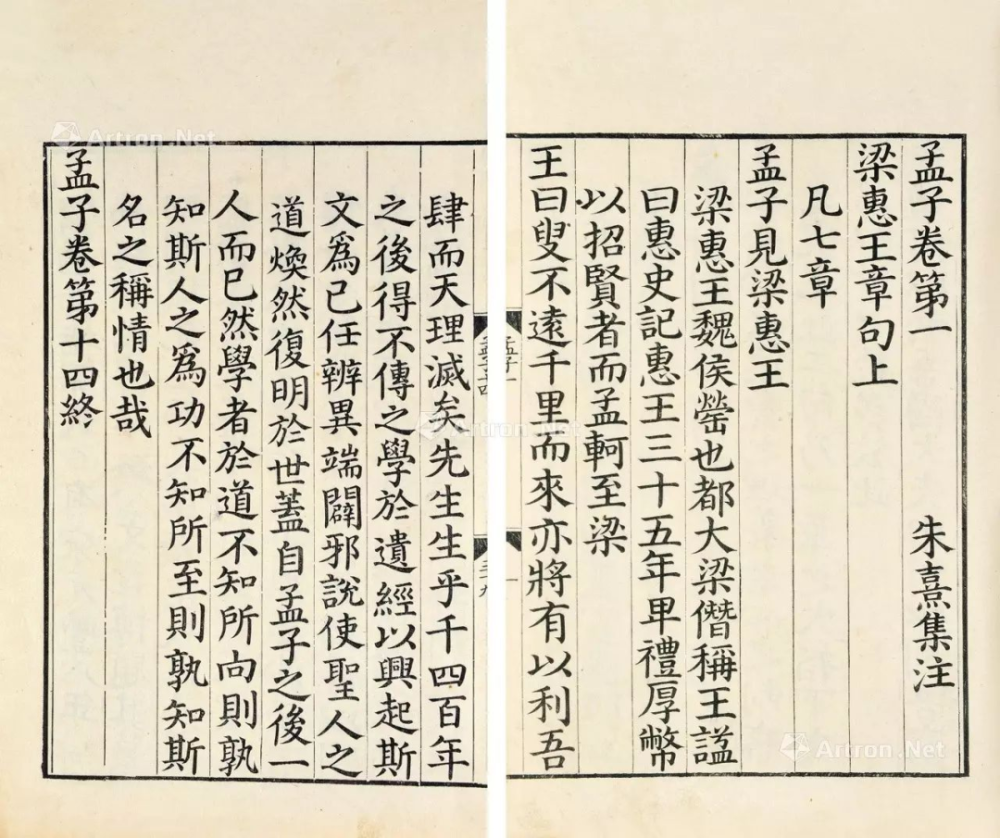 孟子卷第一 朱熹集注
梁惠王章句上
凡七章
孟子見梁惠王
梁惠王魏侯罃也都大梁僭稱王謚
曰惠史記惠王三十五年卑禮厚幣
以招賢者而孟軻至梁
王曰叟不遠千里而來亦將有以利吾
孟子一
一
肆而天理滅矣先生生乎千四百年
之後得不傳之學於遺經以興起斯
文爲己任辨異端闢邪說使聖人之
道煥然復明於世蓋自孟子之後一
人而已然學者於道不知所向則孰
知斯人之爲功不知所至則孰知斯
名之稱情也哉
孟子卷第十四終
Artron.Net
Artron.Net
Artron.Net